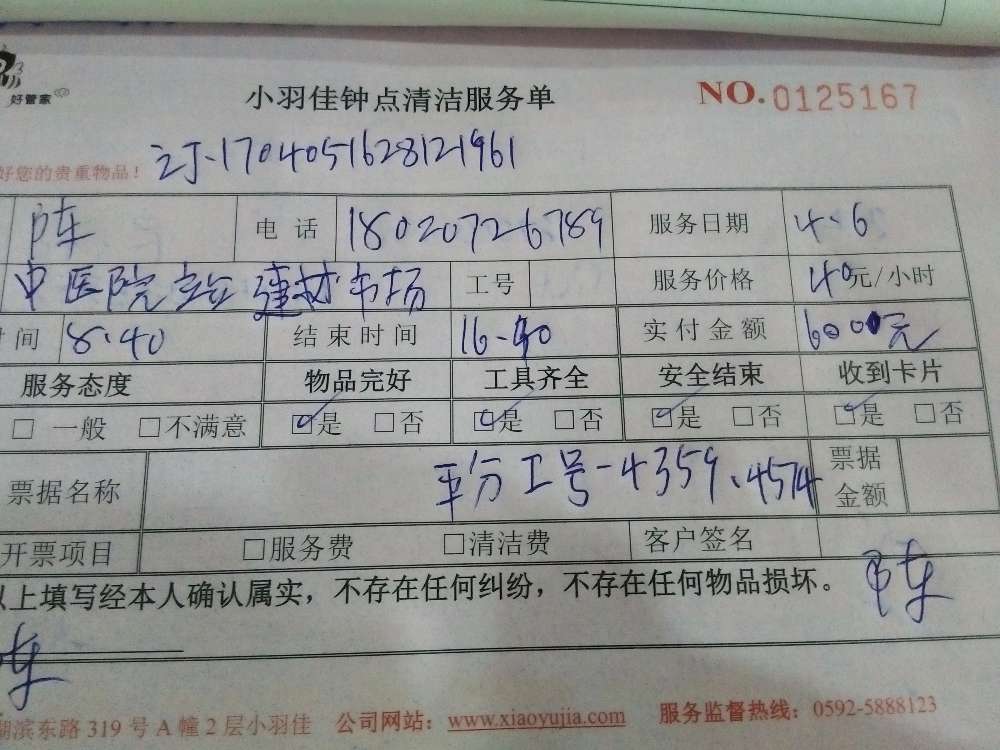 好管家
小羽佳钟点清洁服务单 NO.0125167
好您的贵重物品！ 订-1704051628121961
陈 电话 18020726789 服务日期 4.6
中医院 建材市场 工号 服务价格 40元/小时
时间 8.40 结束时间 16.40 实付金额 600元
服务态度 物品完好 工具齐全 安全结束 收到卡片
□ 一般 □不满意 ☑是 □否 ☑是 □否 ☑是 □否 ☑是 □否
票据名称 平分工号-4359、4574 票据金额
开票项目 □服务费 □清洁费 客户签名
以上填写经本人确认属实，不存在任何纠纷，不存在任何物品损坏。 陈
湖滨东路 319 号 A 幢 2 层小羽佳 公司网站：www.xiaoyujia.com 服务监督热线：0592-5888123